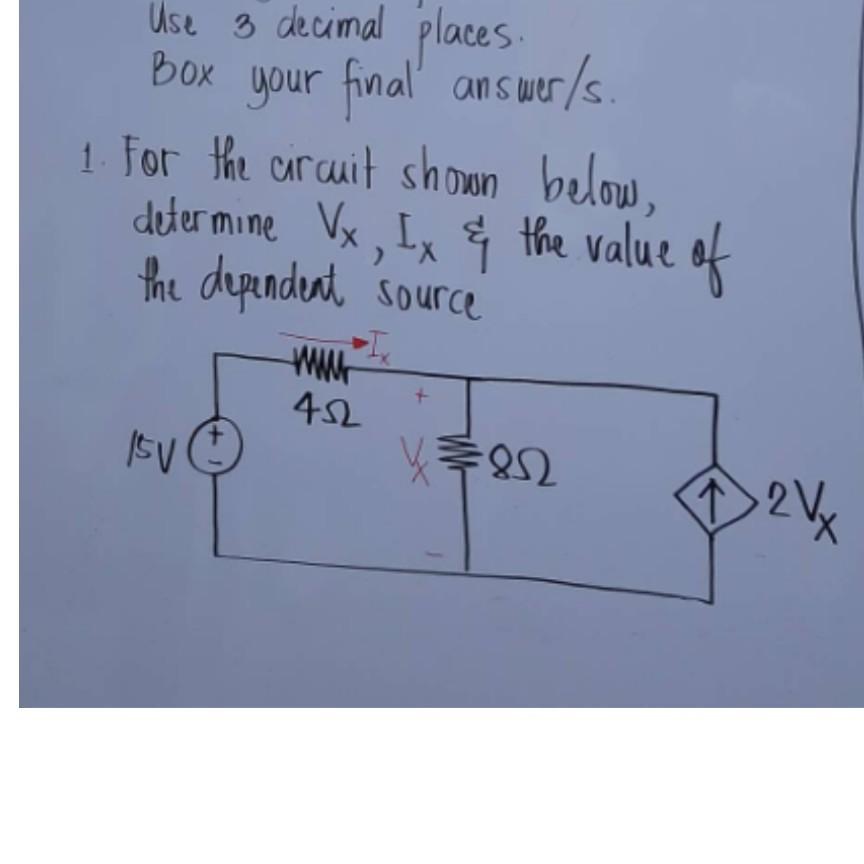 Use 3 decimal places.
Box your final answer/s.
1. For the circuit shown below,
determine Vx, Ix & the value of
the dependent source
Ix
4Ω
15V
+
-
+
Vx
-
8Ω
2Vx